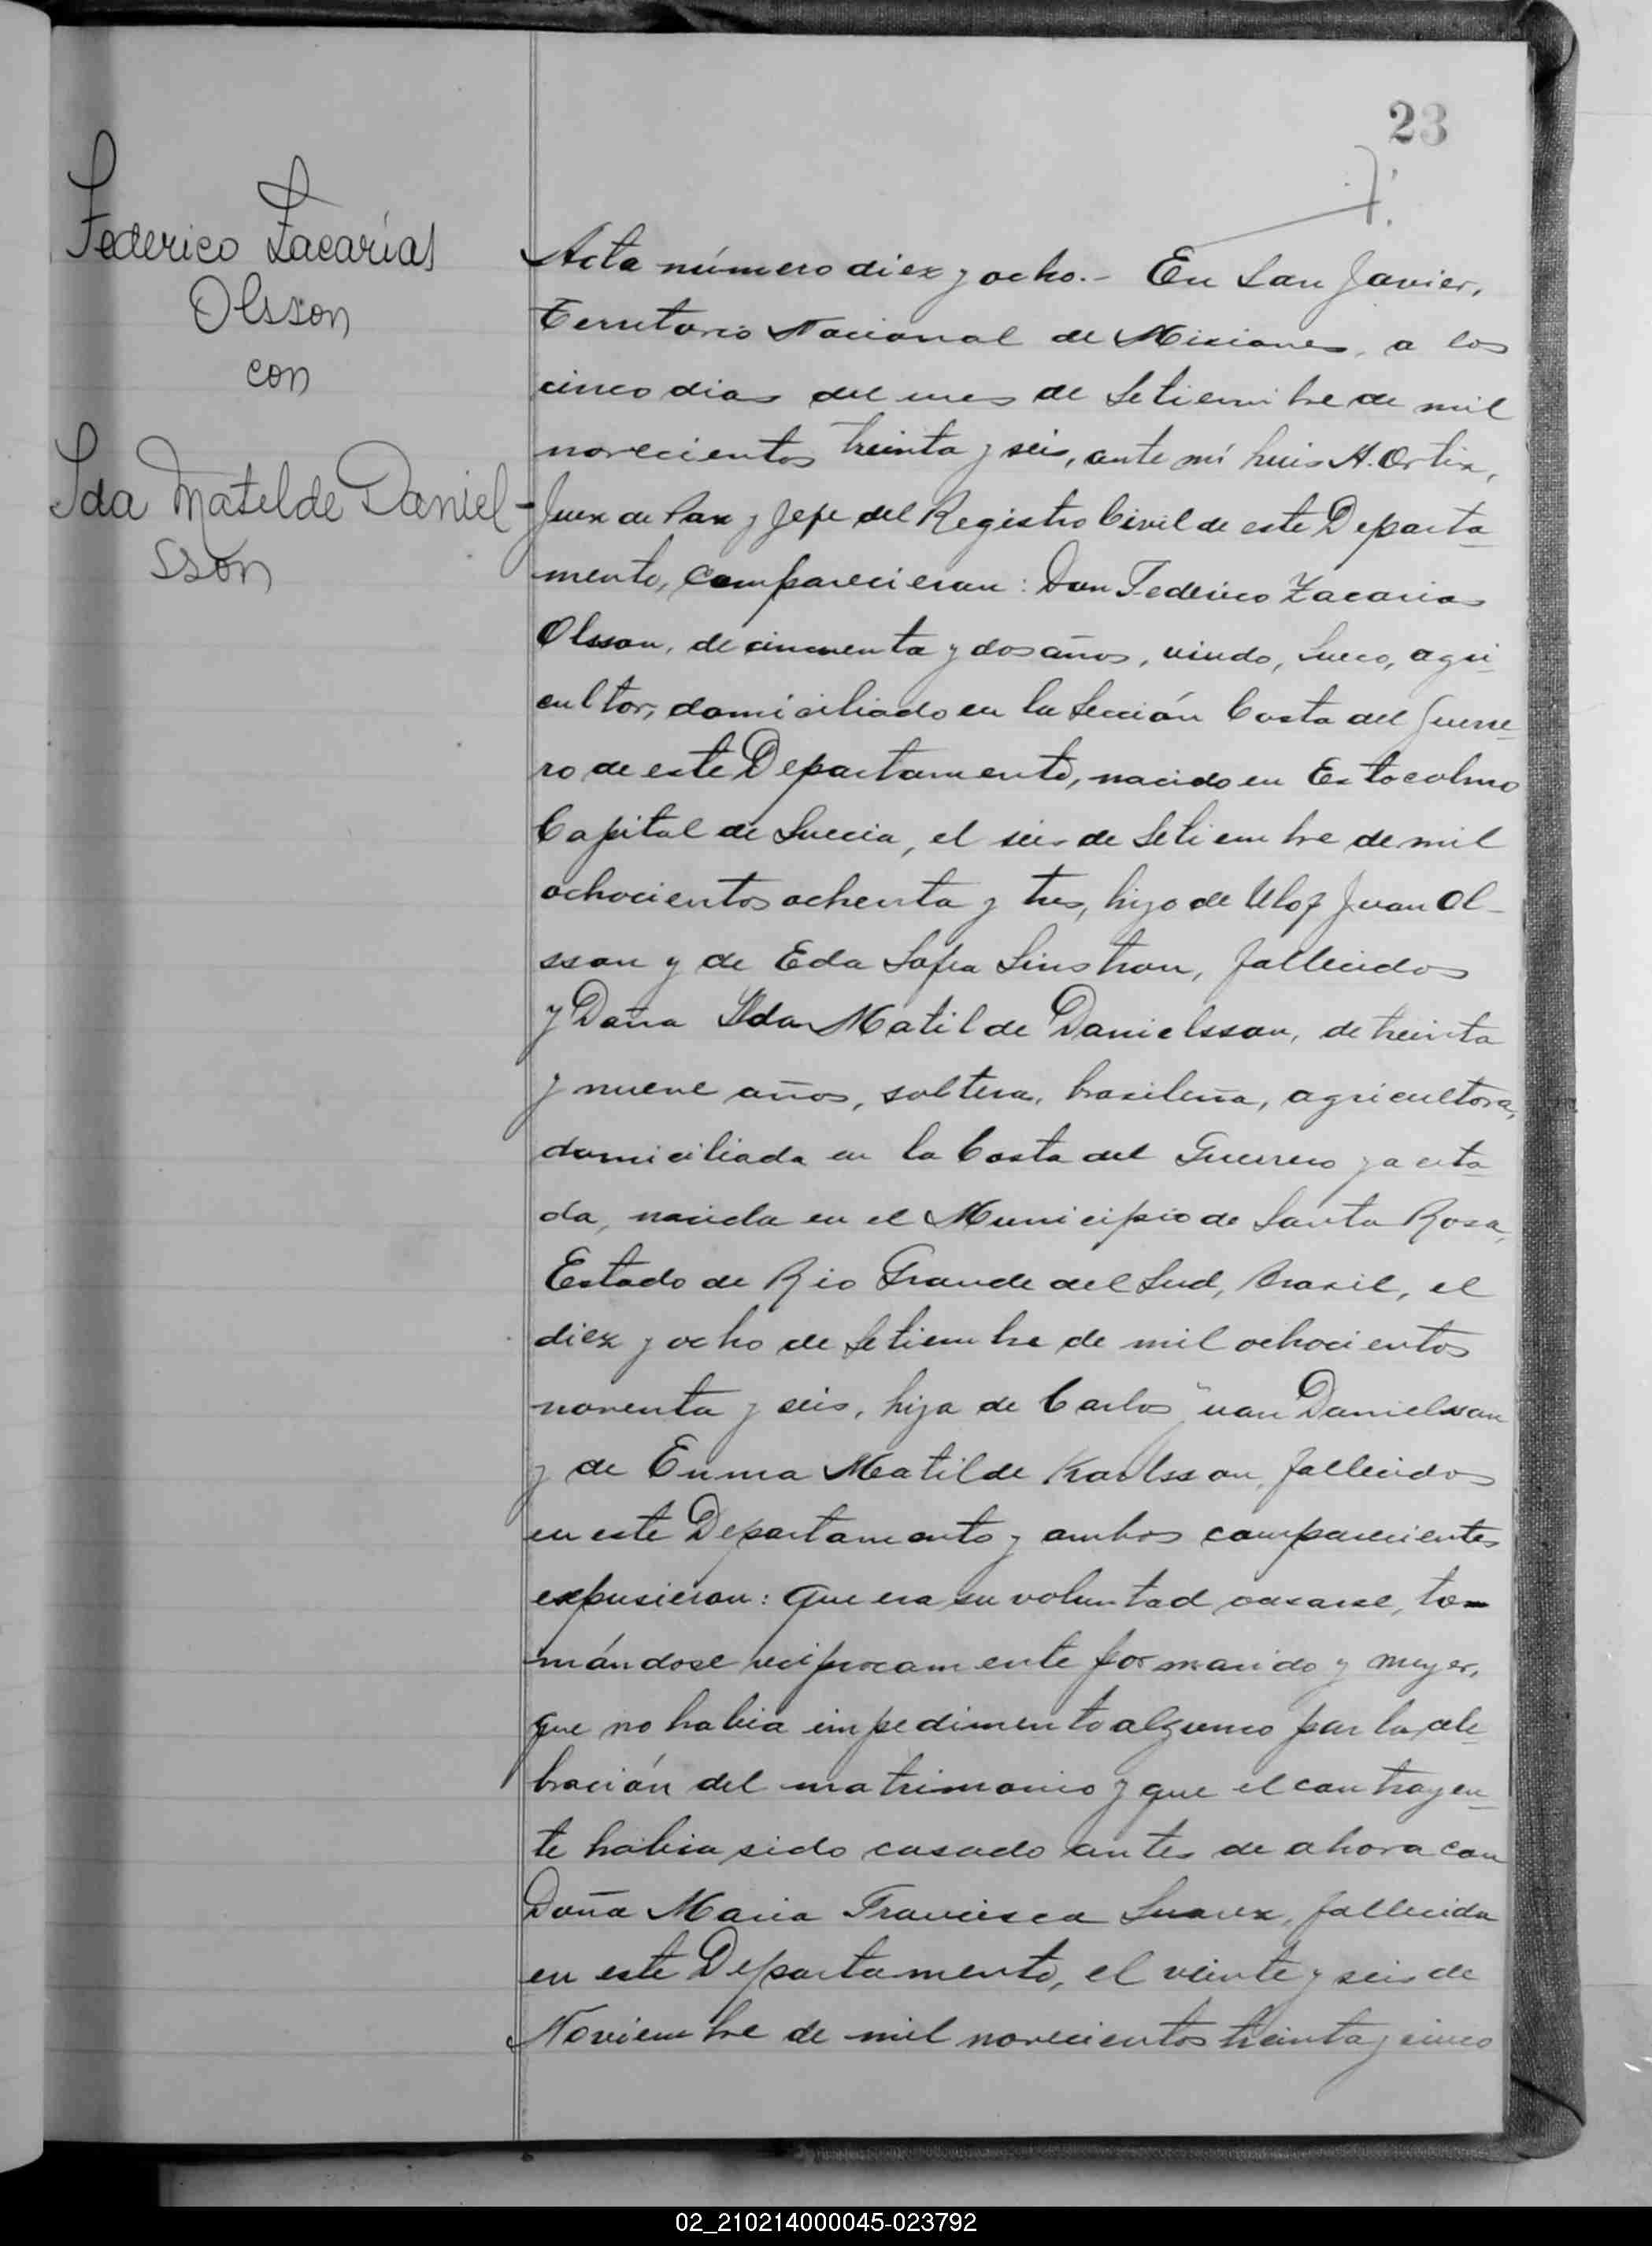 23
Federico Zacarías
Olsson
con
Ida Matilde Daniel-
sson
Acta número diez y ocho.- En San Javier,
Territorio Nacional de Misiones, a los
cinco dias del mes de Setiembre de mil
novecientos treinta y seis, ante mí Luis A. Ortiz,
Juez de Paz y Jefe del Registro Civil de este Departa-
mento, comparecieron: Don Federico Zacarias
Olsson, de cincuenta y dos años, viudo, Sueco, agri-
cultor, domiciliado en la Sección Costa del Guerre-
ro de este Departamento, nacido en Estocolmo
Capital de Suecia, el seis de Setiembre de mil
ochocientos ochenta y tres, hijo de Ulof Juan Ol-
sson y de Eda Sofia Sinstron, fallecidos
y Doña Ida Matilde Danielsson, de treinta
y nueve años, soltera, brasileña, agricultora,
domiciliada en la Costa del Guerrero ya cita-
da, nacida en el Municipio de Santa Rosa,
Estado de Rio Grande del Sud, Brasil, el
diez y ocho de Setiembre de mil ochocientos
noventa y seis, hija de Carlos Juan Danielsson
y de Emma Matilde Karlsson, fallecidos
en este Departamento y ambos comparecientes
expusieron: que era su voluntad casarse, to-
mándose recíprocamente por marido y mujer,
que no habia impedimento alguno par la cele-
bración del matrimonio y que el contrayen-
te habia sido casado antes de ahora con
Doña Maria Francisca Suarez, fallecida
en este Departamento, el veinte y seis de
Noviembre de mil novecientos treinta y cinco
02_210214000045-023792